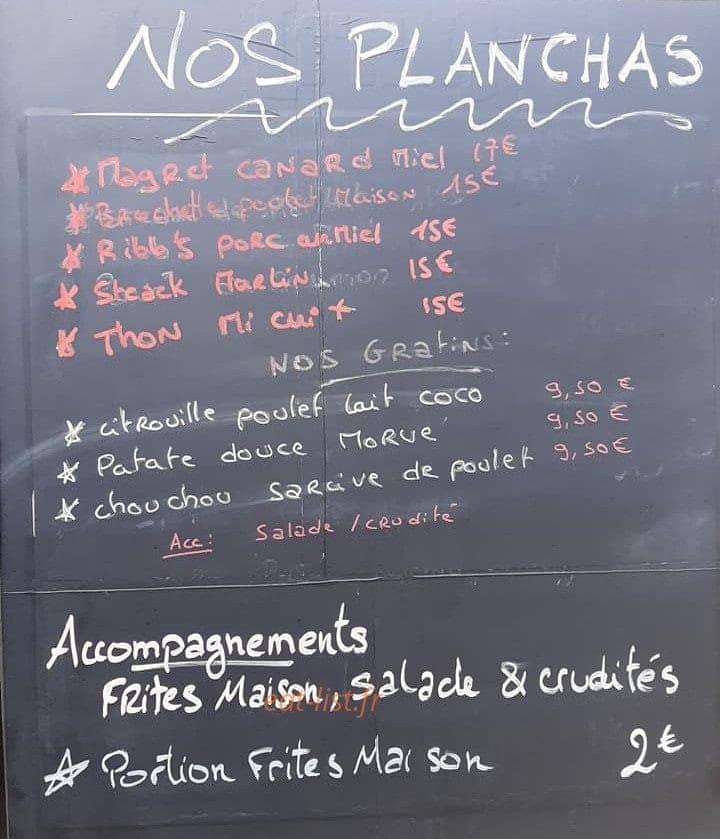 NOS PLANCHAS
* Magret CANARD Miel 17€
* Brochette poulet Maison 15€
* Ribb's PORC au Miel 15€
* Steack Marlin 15€
* THON Mi cuit 15€
NOS GRATINS:
* CITROUILLE poulet lait COCO 9,50 €
* Patate douce MORUE 9,50 €
* chouchou SARCIVE de poulet 9,50€
Acc: Salade / CRUdité
Accompagnements
FRites Maison, Salade & crudités
eat-list.fr
☆ Portion Frites Maison 2€